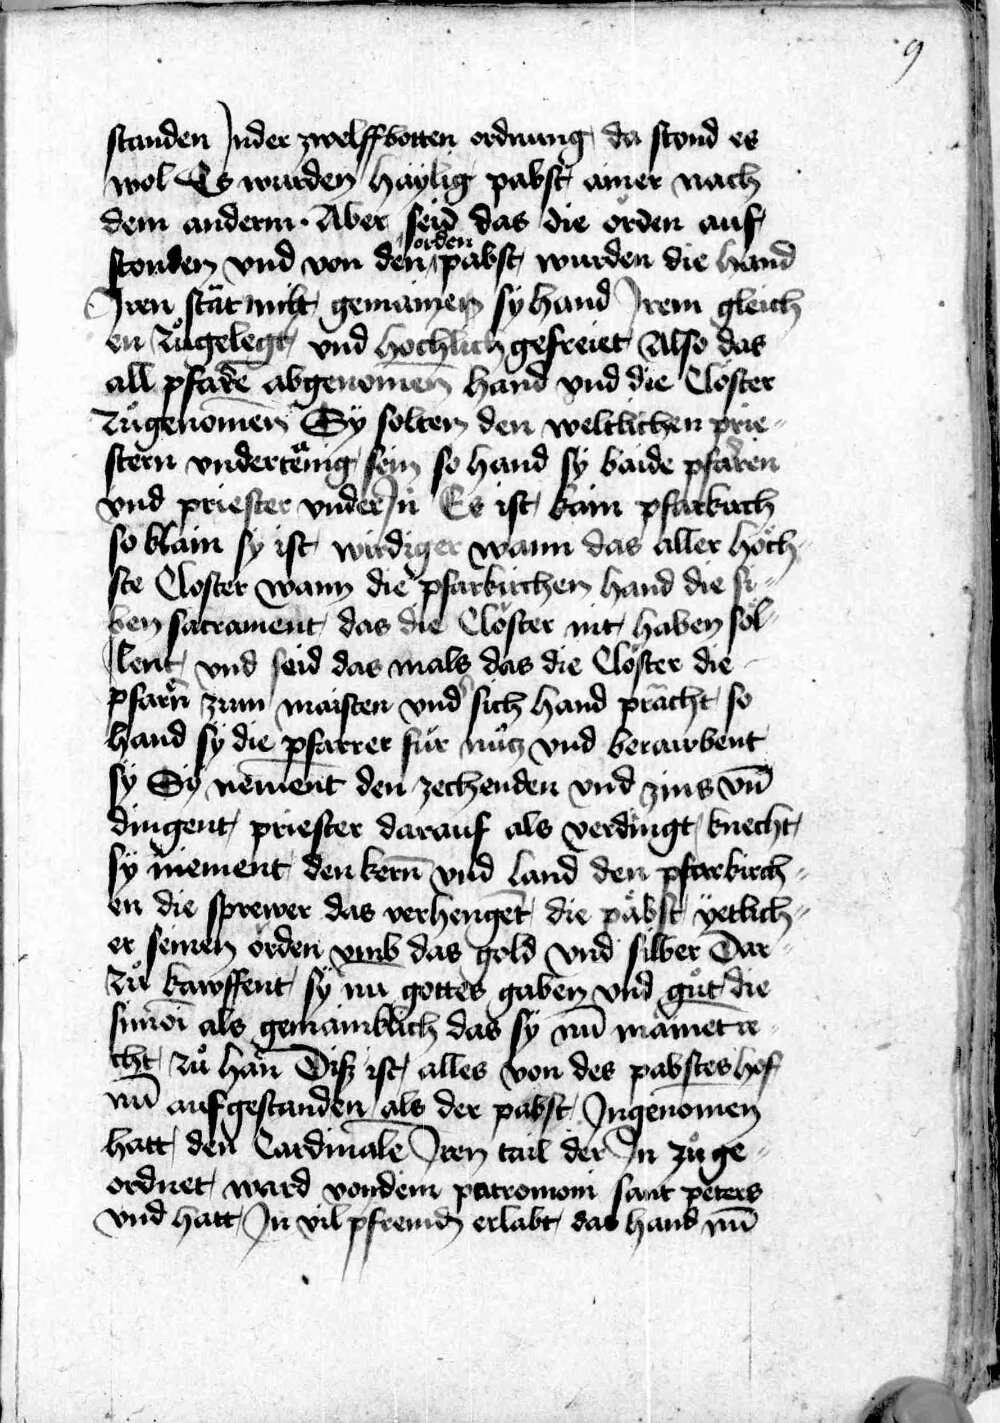 9
standen Inder zwelffbotten ordnung da stond es
wol Es wurden häylig pabst ainer nach
dem anderm · Aber seid das die örden auf
orden
stonden vnd von den pabst wurden die hand
Iren stät nitt gemainen sy hand Irem gleich
en zůgelegt vnd hochlich gefreiet Also das
all pfarē abgenomen̄ hand vnd die Clöster
zůgenomen̄ Sÿ solten den weltlichen prie-
stern vndertënig sein so hand sy baide pfarren
vnd priester vnder In Es ist kain pfarkirch
so klain sy ist wirdiger wann das aller höch-
ste Closter wann die pfarkirchen hand die si-
ben sacrament das die Clöster nit haben söl-
lent vnd seid das mals das die Clöster die
pfarrn̄ zum maisten vnd sich hand prächt so
hand sy die pfarrer für nücz vnd berawbent
sy Sÿ nement̄ den zechenden vnd zins vn̄
dingent priester darauf als verdingt knecht
sÿ niement den kern̄ vnd land den pfarkirch-
en die sprewer das verhenget die päbst yetlich-
er seinen orden vmb das gold vnd silber Dar-
zů kawffent sÿ nu gottes gaben vnd gůt die
simōi als gemainklich das sÿ nun̄ mainet re-
cht zů han̄ Disz ist alles von des pabstes hof
nun̄ aufgestanden als der pabst Ingenomen
hatt den Cardinale Iren tail der In zůge-
ordnet ward vondem patromoni sant peters
vnd hatt In vil pfreund erlabt das hand nun̄